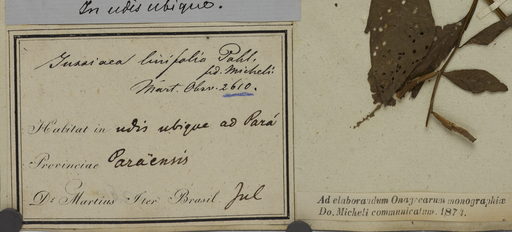 In udis ubique.
Jussiaea linifolia Pohl.
fid. Micheli
Mart. Obs. 2610.
Habitat in udis ubique ad Pará
Provinciae Paraënsis
Dr Martius Iter Brasil. Jul
Ad elaborandum Onagrearum monographiæ
Do. Micheli communicatum. 1874.